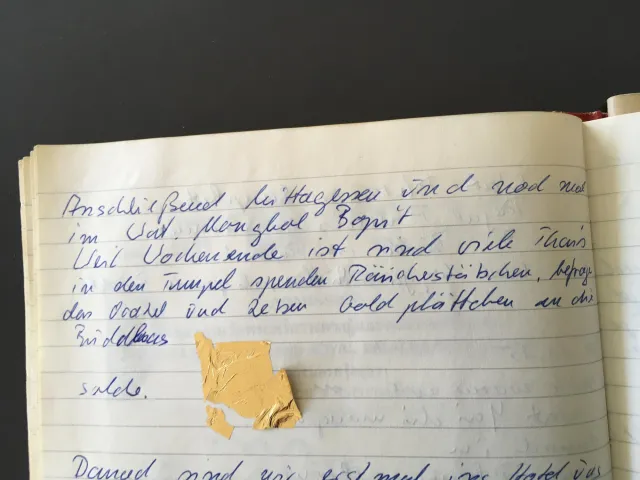 Anschließend Mittagessen und noch mal
im Wat. Monghol Bopit
Weil Wochenende ist sind viele Thais
in den Tempel spenden Räucherstäbchen, befrag-
das Orakel und kleben Goldplättchen an die
Buddhas
solche.
Danach sind wir erst mal ins Hotel